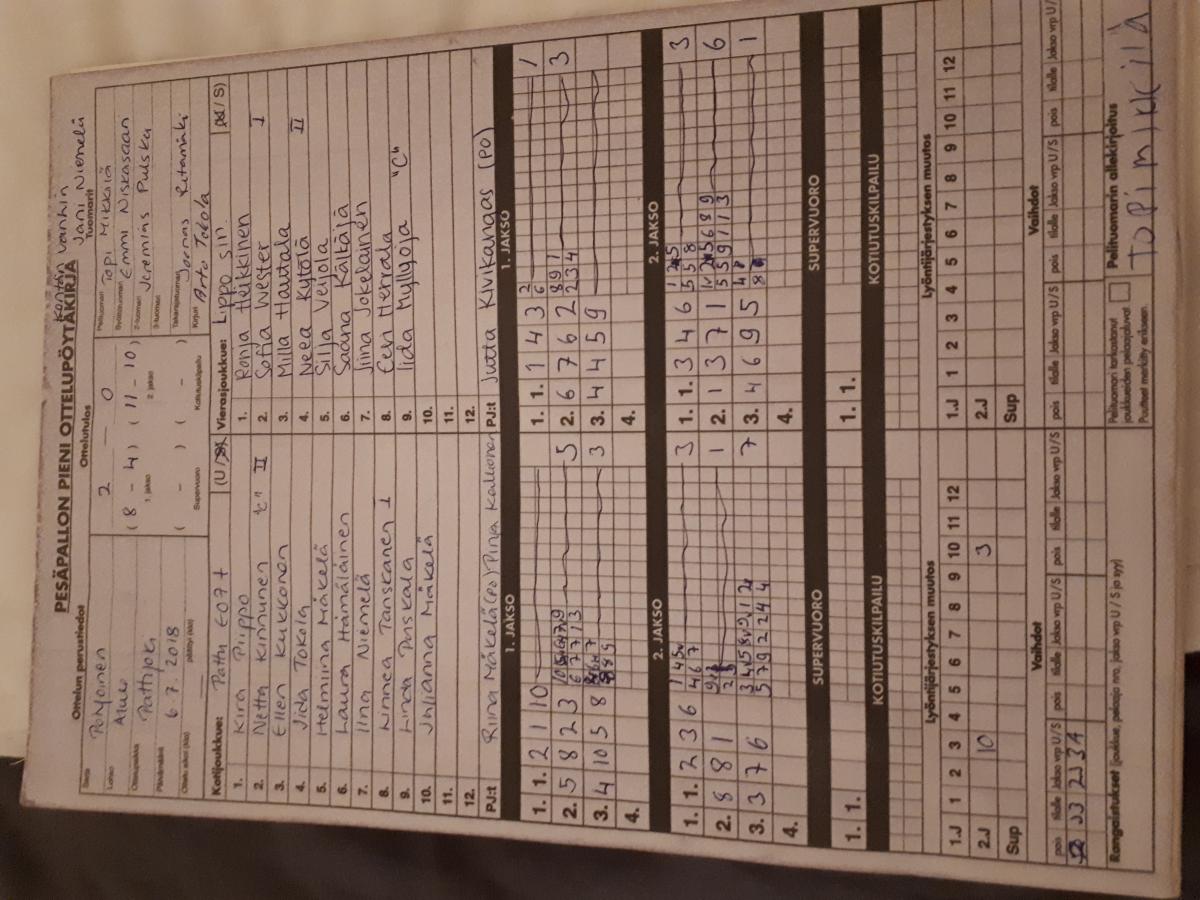 PESÄPALLON PIENI OTTELUPÖYTÄKIRJA
Ottelun perustiedot
Sarja
Pohjoinen
Lohko
Alue
Ottelupaikka
Pattijoki
Päivämäärä
6.7.2018
Ottelu alkoi (klo)
päättyi (klo)
Ottelutulos
2 — 0
(8 - 4) (11 - 10)
1. jakso
2. jakso
( - ) ( - )
Supervuoro
Kotiutuskilpailu
Kentän vanhin
Jani Niemelä
Tuomarit
Pelituomari
Topi Mikkilä
Syöttötuomari
Emmi Niskasaari
2-tuomari
Jeremias Pulska
3-tuomari
Takarajatuomari
Joonas Ritamäki
Kirjuri
Arto Tokola
Kotijoukkue: Pattu E07 t
(U / S)
1. Kira Piippo
2. Netta Kinnunen "C" II
3. Ellen Kukkonen
4. Iida Tokola
5. Helmiina Mäkelä
6. Laura Hämäläinen
7. Iina Niemelä
8. Linnea Tanskanen I
9. Linda Puskala
10. Julianna Mäkelä
11.
12.
PJ:t Riina Mäkelä (PO) Pinja Kallionen
Vierasjoukkue: Lippo sin.
(U / S)
1. Ronja Heikkinen
2. Sofia Wester I
3. Milla Hautala
4. Neea Kytölä II
5. Silja Veijola
6. Saana Kältäjä
7. Jiina Jokelainen
8. Eevi Herrala
9. Iida Myllyoja "C"
10.
11.
12.
PJ:t Jutta Kivikangas (PO)
1. JAKSO
1. 1. 2 1 10
2. 5 8 2 3 5
3. 4 10 5 8 3
4.
1. JAKSO
1. 1. 1 4 3 1
2. 6 7 6 2 3
3. 4 4 5 9
4.
2. JAKSO
1. 1. 2 3 6 3
2. 8 8 1 1
3. 3 7 6 7
4.
2. JAKSO
1. 1. 3 4 6 3
2. 1 3 7 1 6
3. 4 6 9 5 1
4.
SUPERVUORO
1. 1.
SUPERVUORO
1. 1.
KOTIUTUSKILPAILU
KOTIUTUSKILPAILU
Lyöntijärjestyksen muutos
1.J 1 2 3 4 5 6 7 8 9 10 11 12
2.J 10 3
Sup
Lyöntijärjestyksen muutos
1.J 1 2 3 4 5 6 7 8 9 10 11 12
2.J
Sup
Vaihdot
pois tilalle Jakso vrp U/S pois tilalle Jakso vrp U/S pois tilalle Jakso vrp U/S
Vaihdot
pois tilalle Jakso vrp U/S pois tilalle Jakso vrp U/S pois tilalle Jakso vrp U/S
Rangaistukset (joukkue, pelaaja nro, jakso vrp U / S ja syy)
Pelituomari tarkastanut
joukkueiden pelaajaluvat
Puutteet merkitty erikseen.
Pelituomarin allekirjoitus
TOPI MIKKILÄ